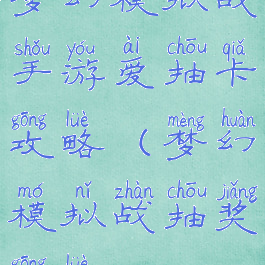 梦幻模拟战
shǒu yóu ài chōu qiǎ
手游爱抽卡
gōng lüè mèng huàn
攻略（梦幻
mó nǐ zhàn chōu jiǎng
模拟战抽奖
gōng lüè